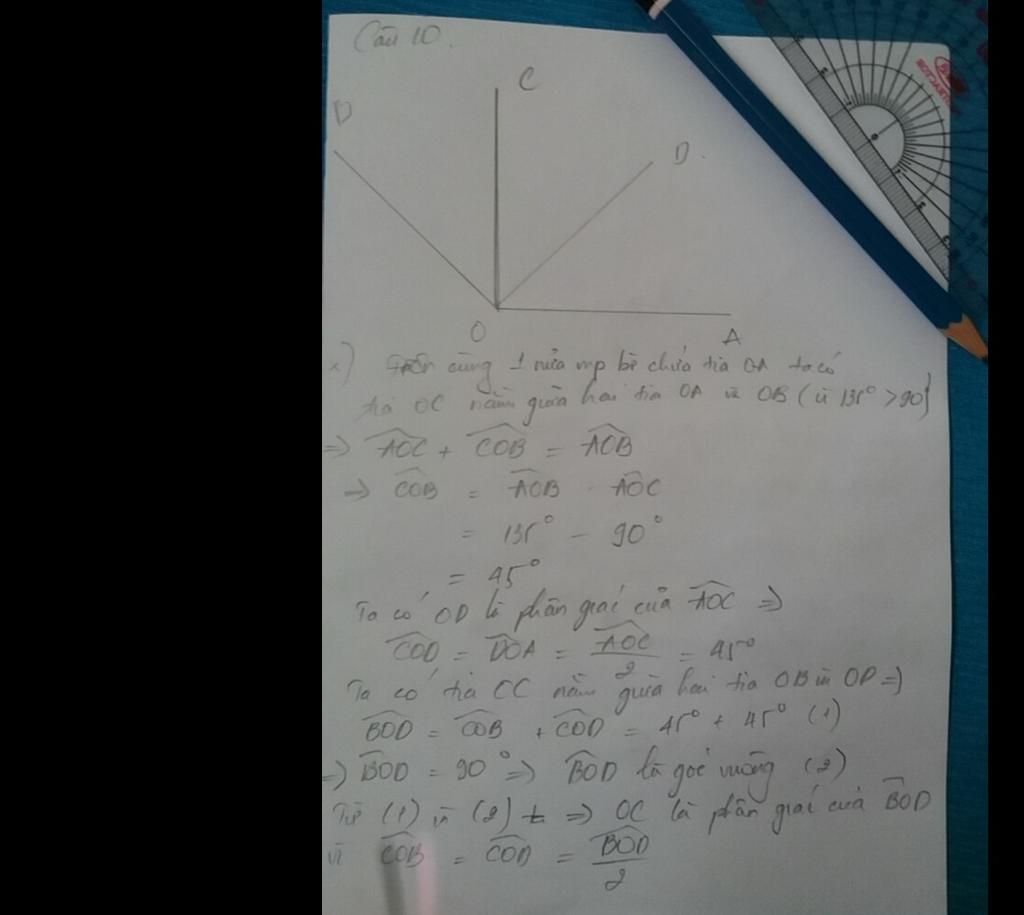 Câu 10.
C
B
D.
O
A
a) Trên cùng 1 nửa mp bờ chứa tia OA ta có
tia OC nằm giữa hai tia OA và OB (vì 135° > 90)
=> AOC + COB = AOB
=> COB = AOB - AOC
= 135° - 90°
= 45°
Ta có OD là phân giác của AOC =>
COD = DOA = AOC/2 = 45°
Ta có tia OC nằm giữa hai tia OB và OD =>
BOD = COB + COD = 45° + 45° (1)
=> BOD = 90° => BOD là góc vuông (2)
Từ (1) và (2) => OC là phân giác của BOD
vì COB = COD = BOD/2